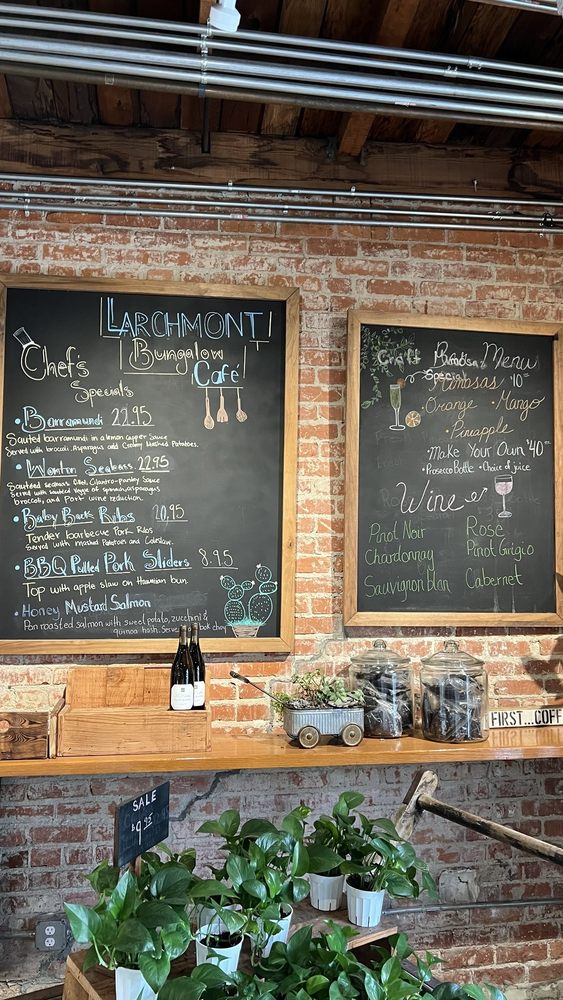 LARCHMONT
Bungalow
Café
Chef's
Specials
• Barramundi 22.95
Sautéd barramundi in a lemon capper Sauce
Served with broccoli, Asparagus and Creamy Mashed Potatoes.
• Wonton Seabass 22.95
Sautéed seabass Cilantro-panley Sauce
Served with sautéed veggie of spinach, asparagus
broccoli, and Port wine reduction.
• Baby Back Ribs 20.95
Tender barbecue Pork Ribs
Served with mashed Potatoes and Coleslaw.
• BBQ Pulled Pork Sliders 8.95
Top with apple slaw on Hawaiian bun
• Honey Mustard Salmon
Pan roasted salmon with sweet potato, zucchini &
quinoa hash. Serve bok choy
Craft Mimosa Menu
Special
Mimosas $10
• Orange • Mango
• Pineapple
• Make Your Own $40
• Prosecco Bottle • Choice of juice
Wine
Pinot Noir Rosé
Chardonnay Pinot Grigio
Sauvignon blan Cabernet
FIRST...COFF
SALE
$9.95